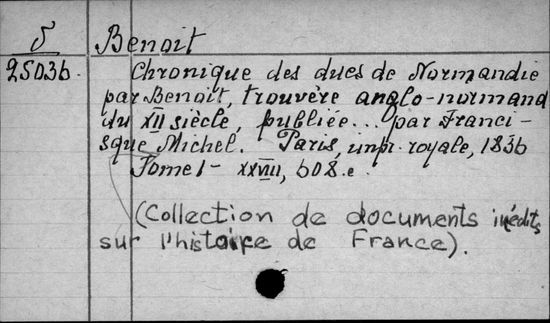 δ Benoit
25036. Chronique des ducs de Normandie
par Benoit, trouvère anglo-normand
du XII siècle, publiée... par Franci-
sque Michel. Paris, impr. royale, 1836
Tome I - XXVIII, 608.e.
(Collection de documents inédits
sur l'histoire de France).